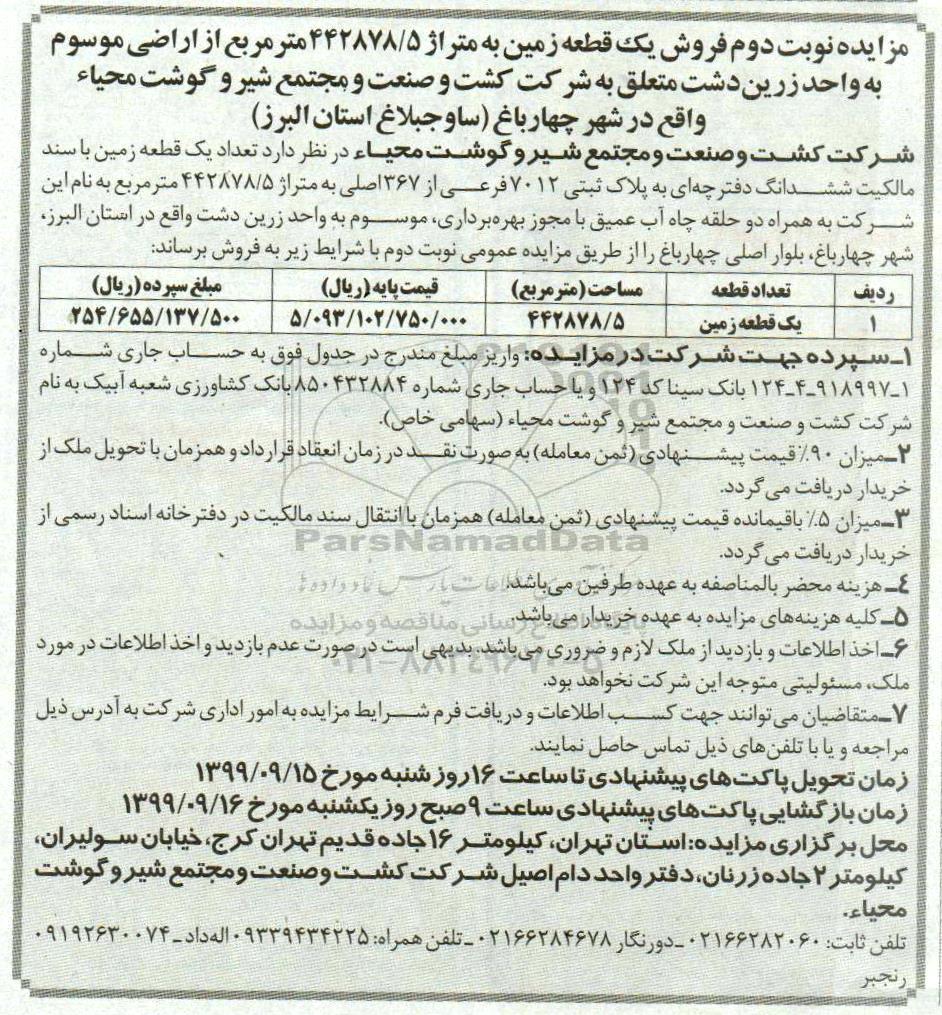 مزایده نوبت دوم فروش یک قطعه زمین به متراژ ۴۴۲۸۷۸/۵ مترمربع از اراضی موسوم
به واحد زرین دشت متعلق به شرکت کشت و صنعت و مجتمع شیر و گوشت محیاء
واقع در شهر چهارباغ (ساوجبلاغ استان البرز)
شرکت کشت و صنعت و مجتمع شیر و گوشت محیاء در نظر دارد تعداد یک قطعه زمین با سند
مالکیت ششدانگ دفترچه‌ای به پلاک ثبتی ۷۰۱۲ فرعی از ۳۶۷ اصلی به متراژ ۴۴۲۸۷۸/۵ مترمربع به نام این
شرکت به همراه دو حلقه چاه آب عمیق با مجوز بهره‌برداری، موسوم به واحد زرین دشت واقع در استان البرز،
شهر چهارباغ، بلوار اصلی چهارباغ را از طریق مزایده عمومی نوبت دوم با شرایط زیر به فروش برساند:
ردیف تعداد قطعه مساحت (مترمربع) قیمت پایه (ریال) مبلغ سپرده (ریال)
۱ یک قطعه زمین ۴۴۲۸۷۸/۵ ۵/۰۹۳/۱۰۲/۷۵۰/۰۰۰ ۲۵۴/۶۵۵/۱۳۷/۵۰۰
۱ـ سپرده جهت شرکت در مزایده: واریز مبلغ مندرج در جدول فوق به حساب جاری شماره
۱ـ۹۱۸۹۹۷ـ۴ـ۱۲۴ بانک سینا کد ۱۲۴ و یا حساب جاری شماره ۸۵۰۴۳۲۸۸۴ بانک کشاورزی شعبه آبیک به نام
شرکت کشت و صنعت و مجتمع شیر و گوشت محیاء (سهامی خاص).
۲ـ میزان ۹۰٪ قیمت پیشنهادی (ثمن معامله) به صورت نقد در زمان انعقاد قرارداد و همزمان با تحویل ملک از
خریدار دریافت می‌گردد.
۳ـ میزان ۵٪ باقیمانده قیمت پیشنهادی (ثمن معامله) همزمان با انتقال سند مالکیت در دفترخانه اسناد رسمی از
خریدار دریافت می‌گردد.
ParsNamadData
۴ـ هزینه محضر بالمناصفه به عهده طرفین می‌باشد.
۵ـ کلیه هزینه‌های مزایده به عهده خریدار می‌باشد.
۶ـ اخذ اطلاعات و بازدید از ملک لازم و ضروری می‌باشد. بدیهی است در صورت عدم بازدید و اخذ اطلاعات در مورد
ملک، مسئولیتی متوجه این شرکت نخواهد بود.
۷ـ متقاضیان می‌توانند جهت کسب اطلاعات و دریافت فرم شرایط مزایده به امور اداری شرکت به آدرس ذیل
مراجعه و یا با تلفن‌های ذیل تماس حاصل نمایند.
زمان تحویل پاکت‌های پیشنهادی تا ساعت ۱۶ روز شنبه مورخ ۱۳۹۹/۰۹/۱۵
زمان بازگشایی پاکت‌های پیشنهادی ساعت ۹ صبح روز یکشنبه مورخ ۱۳۹۹/۰۹/۱۶
محل برگزاری مزایده: استان تهران، کیلومتر ۱۶ جاده قدیم تهران کرج، خیابان سولیران،
کیلومتر ۲ جاده زرنان، دفتر واحد دام اصیل شرکت کشت و صنعت و مجتمع شیر و گوشت
محیاء.
تلفن ثابت: ۰۲۱۶۶۲۸۲۰۶۰ ـ دورنگار ۰۲۱۶۶۲۸۴۶۷۸ ـ تلفن همراه: ۰۹۳۳۹۴۳۴۲۲۵ اله‌داد ـ ۰۹۱۹۲۶۳۰۰۷۴
رنجبر